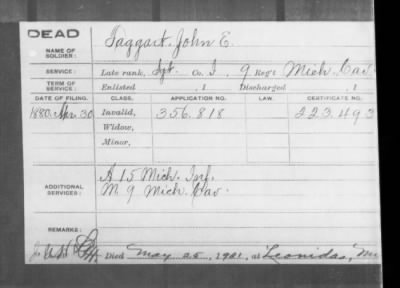 DEAD
NAME OF SOLDIER: Taggart John E.
SERVICE: Late rank, Sgt. Co. I, 9 Reg't Mich. Cav.
TERM OF SERVICE: Enlisted , 1 Discharged , 1
DATE OF FILING. CLASS. APPLICATION NO. LAW. CERTIFICATE NO.
1880. Apr. 30 Invalid, 356.818 223.493
Widow,
Minor,
ADDITIONAL SERVICES: A 15 Mich. Inf.
M. 9 Mich. Cav.
REMARKS:
Died May 25, 1901, at Leonidas,